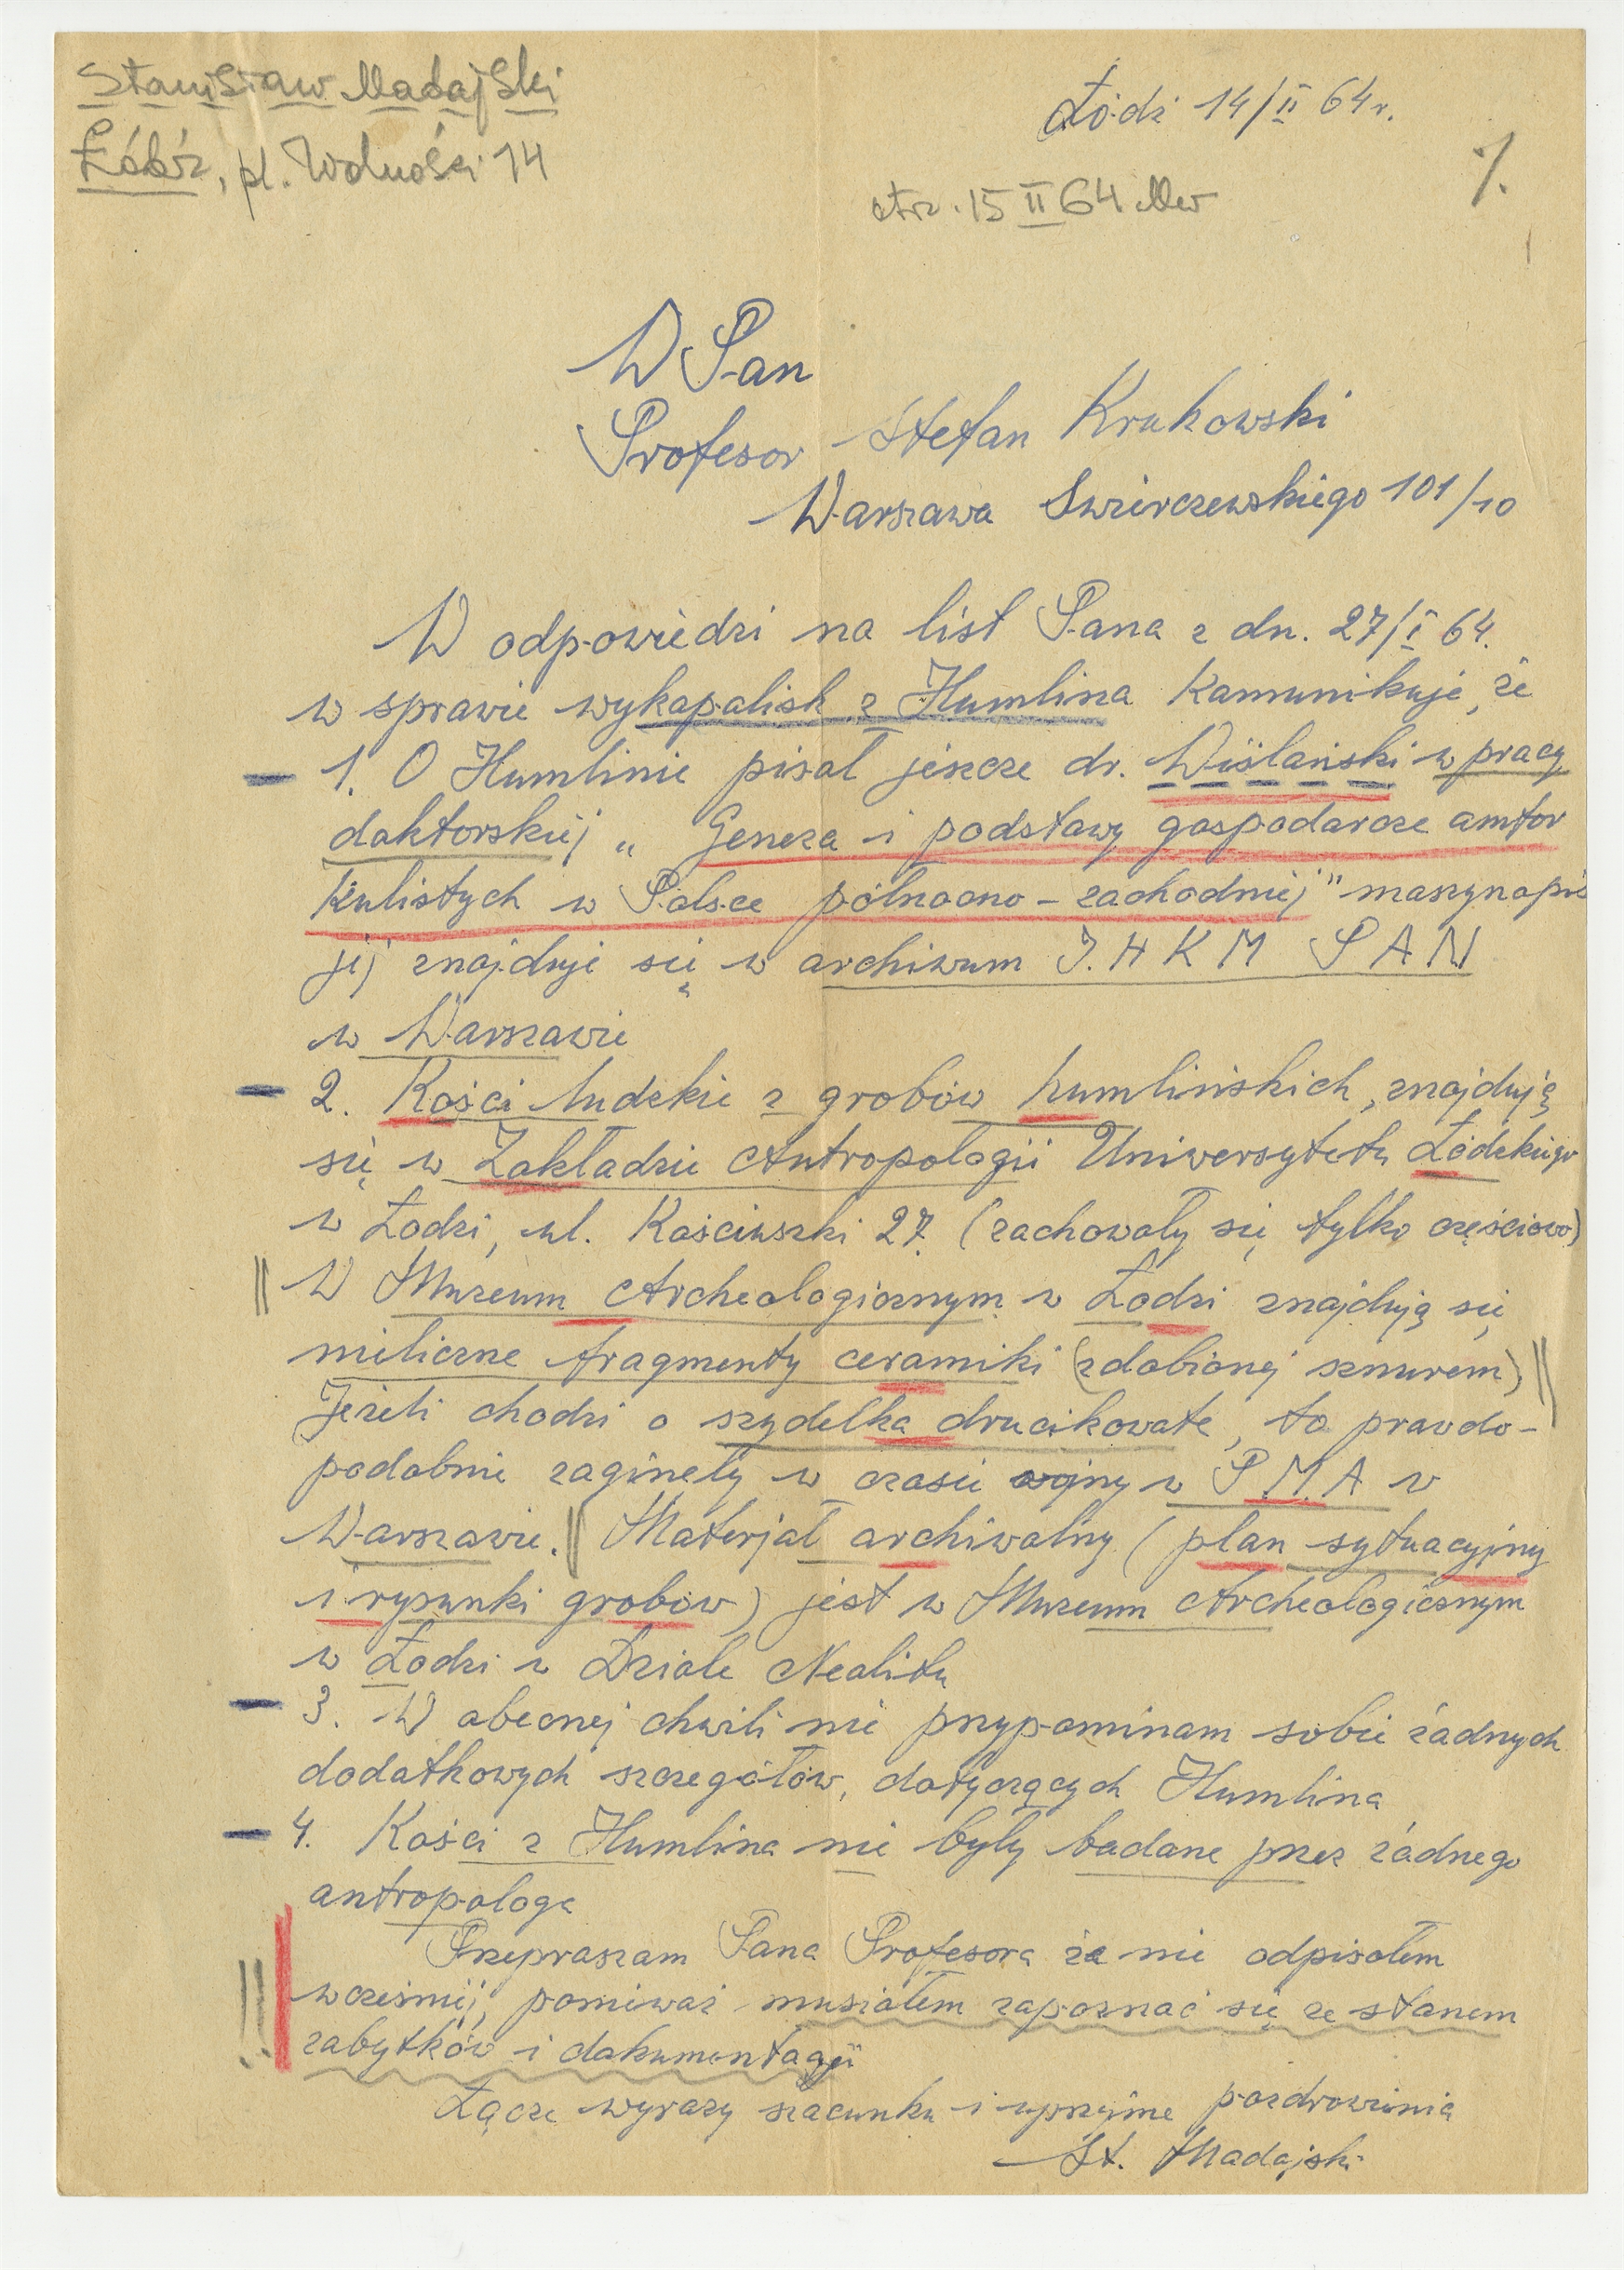 Stanisław Madajski
Łódź, pl. Wolności 14
Łódź 14/II 64 r.
otrz. 15 II 64
W Pan
Profesor Stefan Krukowski
Warszawa Swierczewskiego 101/10
W odpowiedzi na list Pana z dn. 27/I 64.
w sprawie wykopalisk z Humlina Komunikuję, że
1. O Humlinie pisał jeszcze dr. Wiślański w pracy
doktorskiej „Geneza i podstawy gospodarcze amfor
Kulistych w Polsce północno-zachodniej" maszynopis
jej znajduje się w archiwum I. H K M P A N
w Warszawie
2. Kości ludzkie z grobów humlińskich, znajdują
się w Zakładzie Antropologii Uniwersytetu Łódzkiego
w Łodzi, ul. Kościuszki 27. (zachowały się tylko częściowo)
W Muzeum Archeologicznym w Łodzi znajdują się
nieliczne fragmenty ceramiki (zdobionej sznurem)
Jeżeli chodzi o szydełka drucikowate, to prawdo-
podobnie zaginęły w czasie wojny w P M A w
Warszawie. Materjał archiwalny (plan sytuacyjny
i rysunki grobów) jest w Muzeum Archeologicznym
w Łodzi w Dziale Neolitu
3. W obecnej chwili nie przypominam sobie żadnych
dodatkowych szczegółów, dotyczących Humlina
4. Kości z Humlina nie były badane przez żadnego
antropologa
Przepraszam Pana Profesora że nie odpisałem
wcześniej, ponieważ musiałem zapoznać się ze stanem
zabytków i dokumentacji
Łączę wyrazy szacunku i uprzejme pozdrowienia
St. Madajski